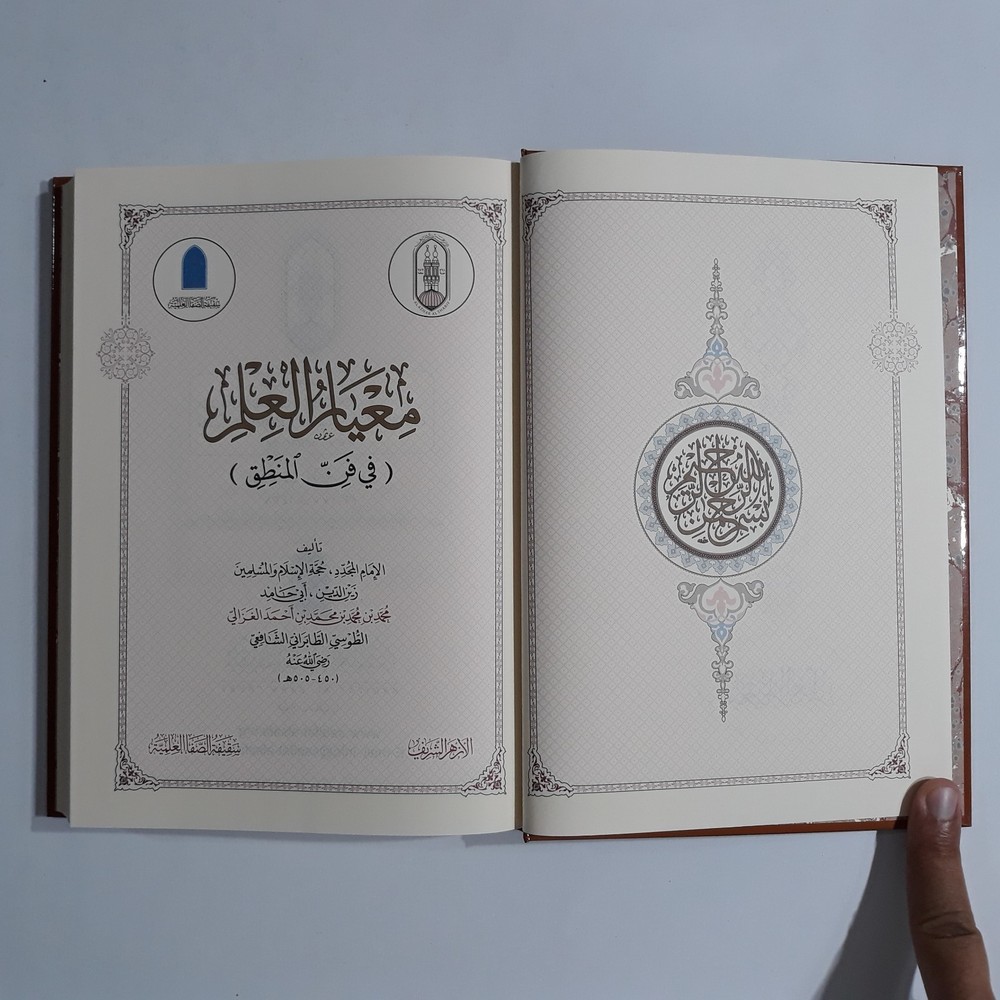 بسم الله الرحمن الرحيم
سقيفة الصفا العلمية
معيار العلم
(في فن المنطق)
تأليف
الإمام المجدد، حجة الإسلام والمسلمين
زين الدين، أبي حامد
محمد بن محمد بن محمد بن أحمد الغزالي
الطوسي الطابراني الشافعي
رضي الله عنه
(٤٥٠-٥٠٥هـ)
الأزهر الشريف
سقيفة الصفا العلمية